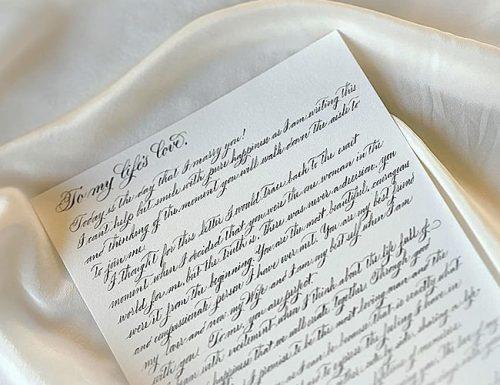 To my life's Love,
Today is the day that I marry you!
I can't help but smile with pure happiness as I am writing this
and thinking of the moment you will walk down the aisle to
to join me.
I thought for this letter I would trace back to the exact
moment when I decided that you were the one woman in the
world for me, but the truth is, there was never a decision, you
were it from the beginning. You are the most beautiful, courageous
and compassionate person I have ever met. You are my best friend
my lover and now my Wife and I am my best self when I am
with you. To me, you are perfect.
with excitement when I think about the life full of
happiness that we will create together. Through good
I promise to be the most loving man and the
I can be because that is exactly what
to express the feeling I have in
sharing life